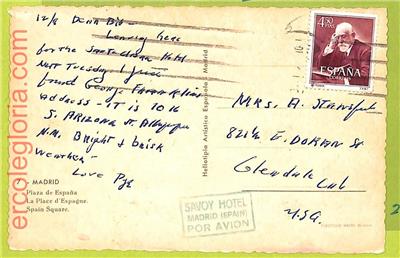 ercolegloria.com
12/8 Dear Bil -
Leaving here
for the Hotel
next Tuesday I just
found George Franklin's
address - it is 1016
S. Arizona St.
N.M. Bright & brisk
weather!
Love
MADRID
Plaza de España
La Place d'Espagne.
Spain Square.
Heliotipia Artística Española - Madrid
4,50 PTAS
ESPAÑA
CORREOS
Mrs. A.
821½ E. Doran St
Glendale
Cal
U.S.A.
SAVOY HOTEL
MADRID (SPAIN)
POR AVION
2